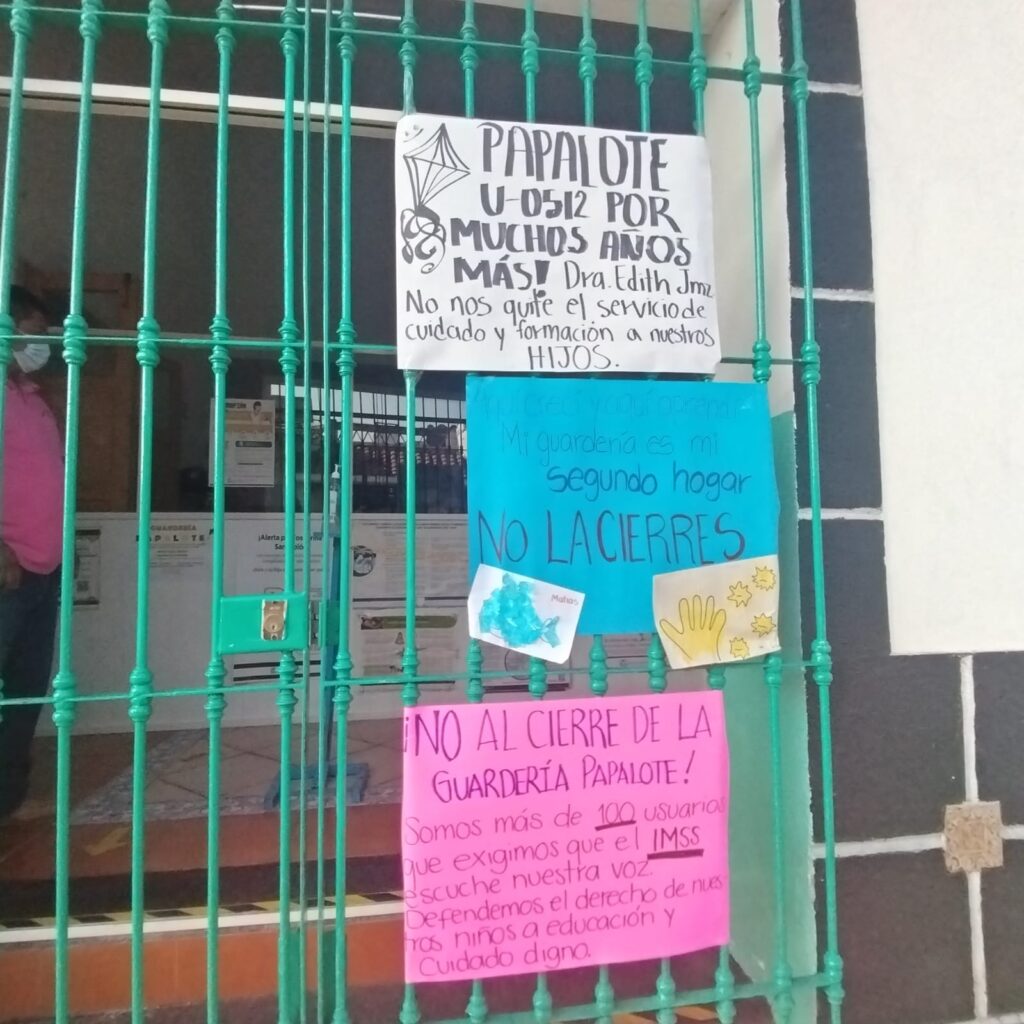 PAPALOTE
U-0512 POR
MUCHOS AÑOS
MÁS! Dra. Edith Jmz
No nos quite el servicio de
cuidado y formación a nuestros
HIJOS.
Aquí crecí y aquí aprendí
Mi guardería es mi
segundo hogar
NO LA CIERRES
Matias
GUARDERÍA
PAPALOTE
¡NO AL CIERRE DE LA
GUARDERÍA PAPALOTE!
Somos más de 100 usuarios
que exigimos que el IMSS
escuche nuestra voz.
Defendemos el derecho de nues-
tros niños a educación y
Cuidado digno.